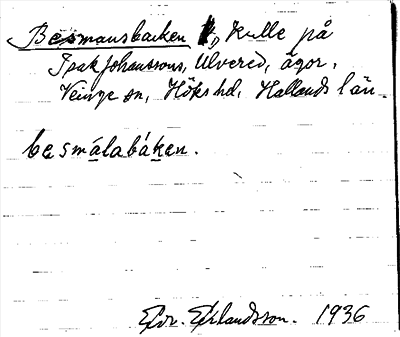 Besmansbacken, kulle på
Isak Johanssons, Ulvered, ägor,
Veinge sn, Höks hd, Hallands län.
besmálabáken.
Edv. Erlandsson. 1936